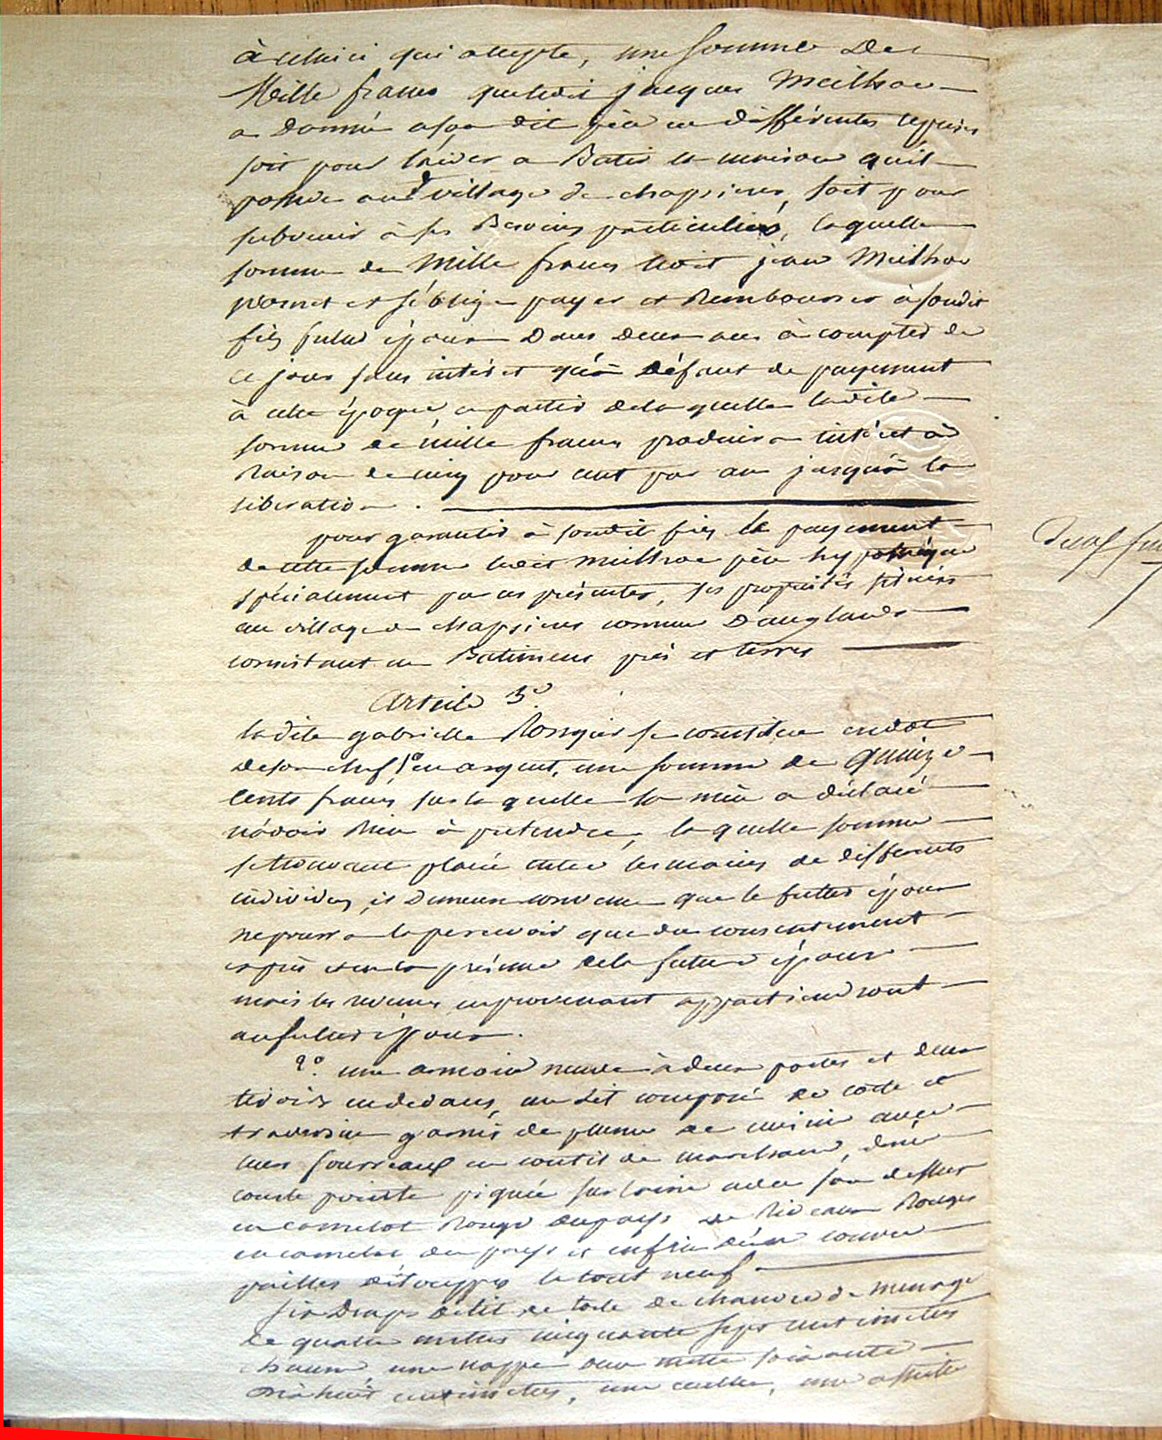 à celui ci qui accepte, une somme de
Mille francs queledit jacques Meilhac
a donné a son dit père en différentes reprises
soit pour l'aider a Batir la maison quil
possede audt village de chapsieres, soit pour
subvenir à ses Besoins particuliers, laquelle
somme de Mille francs ledit jean Meilhac
promet et s'oblige payer et Rembourser à sondit
fils futur époux Dans deux ans à compter de
ce jour sans intérêt qu'à défaut de payement
à cette époque, a partir delaquelle ladite
somme de mille francs produira intérêt à
Raison de cinq pour cent par an jusqu'à la
libération.
pour garantir à sondit fils le payement
de cette somme ledit Meilhac père hypothèque
spécialement par ces présentes, ses propriétés situées
au village de chapsieres commune d'anglards
consistant en Batimens prés et terres
Article 3e
ladite gabrielle Rongier se constitue endot
deson chef 1o en argent, une somme de Quinze
cents francs sur laquelle sa mère a déclaré
n'avoir Rien à prétendre, laquelle somme
setrouvant placée entre lesmains de différents
individus, il demeure convenu que le futur époux
nepourra la percevoir que du consentement
exprès et en la présence dela future épouse
mais les revenus enprovenant appartiendront
aufutur époux.
2o. une armoire neuve à deux portes et deux
tiroirs endedans, un Lit composé de coete et
traversin garnis de plume de cuisine avec
leurs fourreaux en coutil de marchand, d'une
courte pointe piquée sur laine avec son dessus
en camelot Rouge dupays de Rideaux Rouges
en camelot du pays et enfin d'une couver
paillas d'étouppes le tout neuf.
six Draps delit de toile de chanvre de menage
de quatre metres cinquante sept centimetres
chacun, une nappe deux metres soixante
dix huit centimetres, une cuiller, une assiette